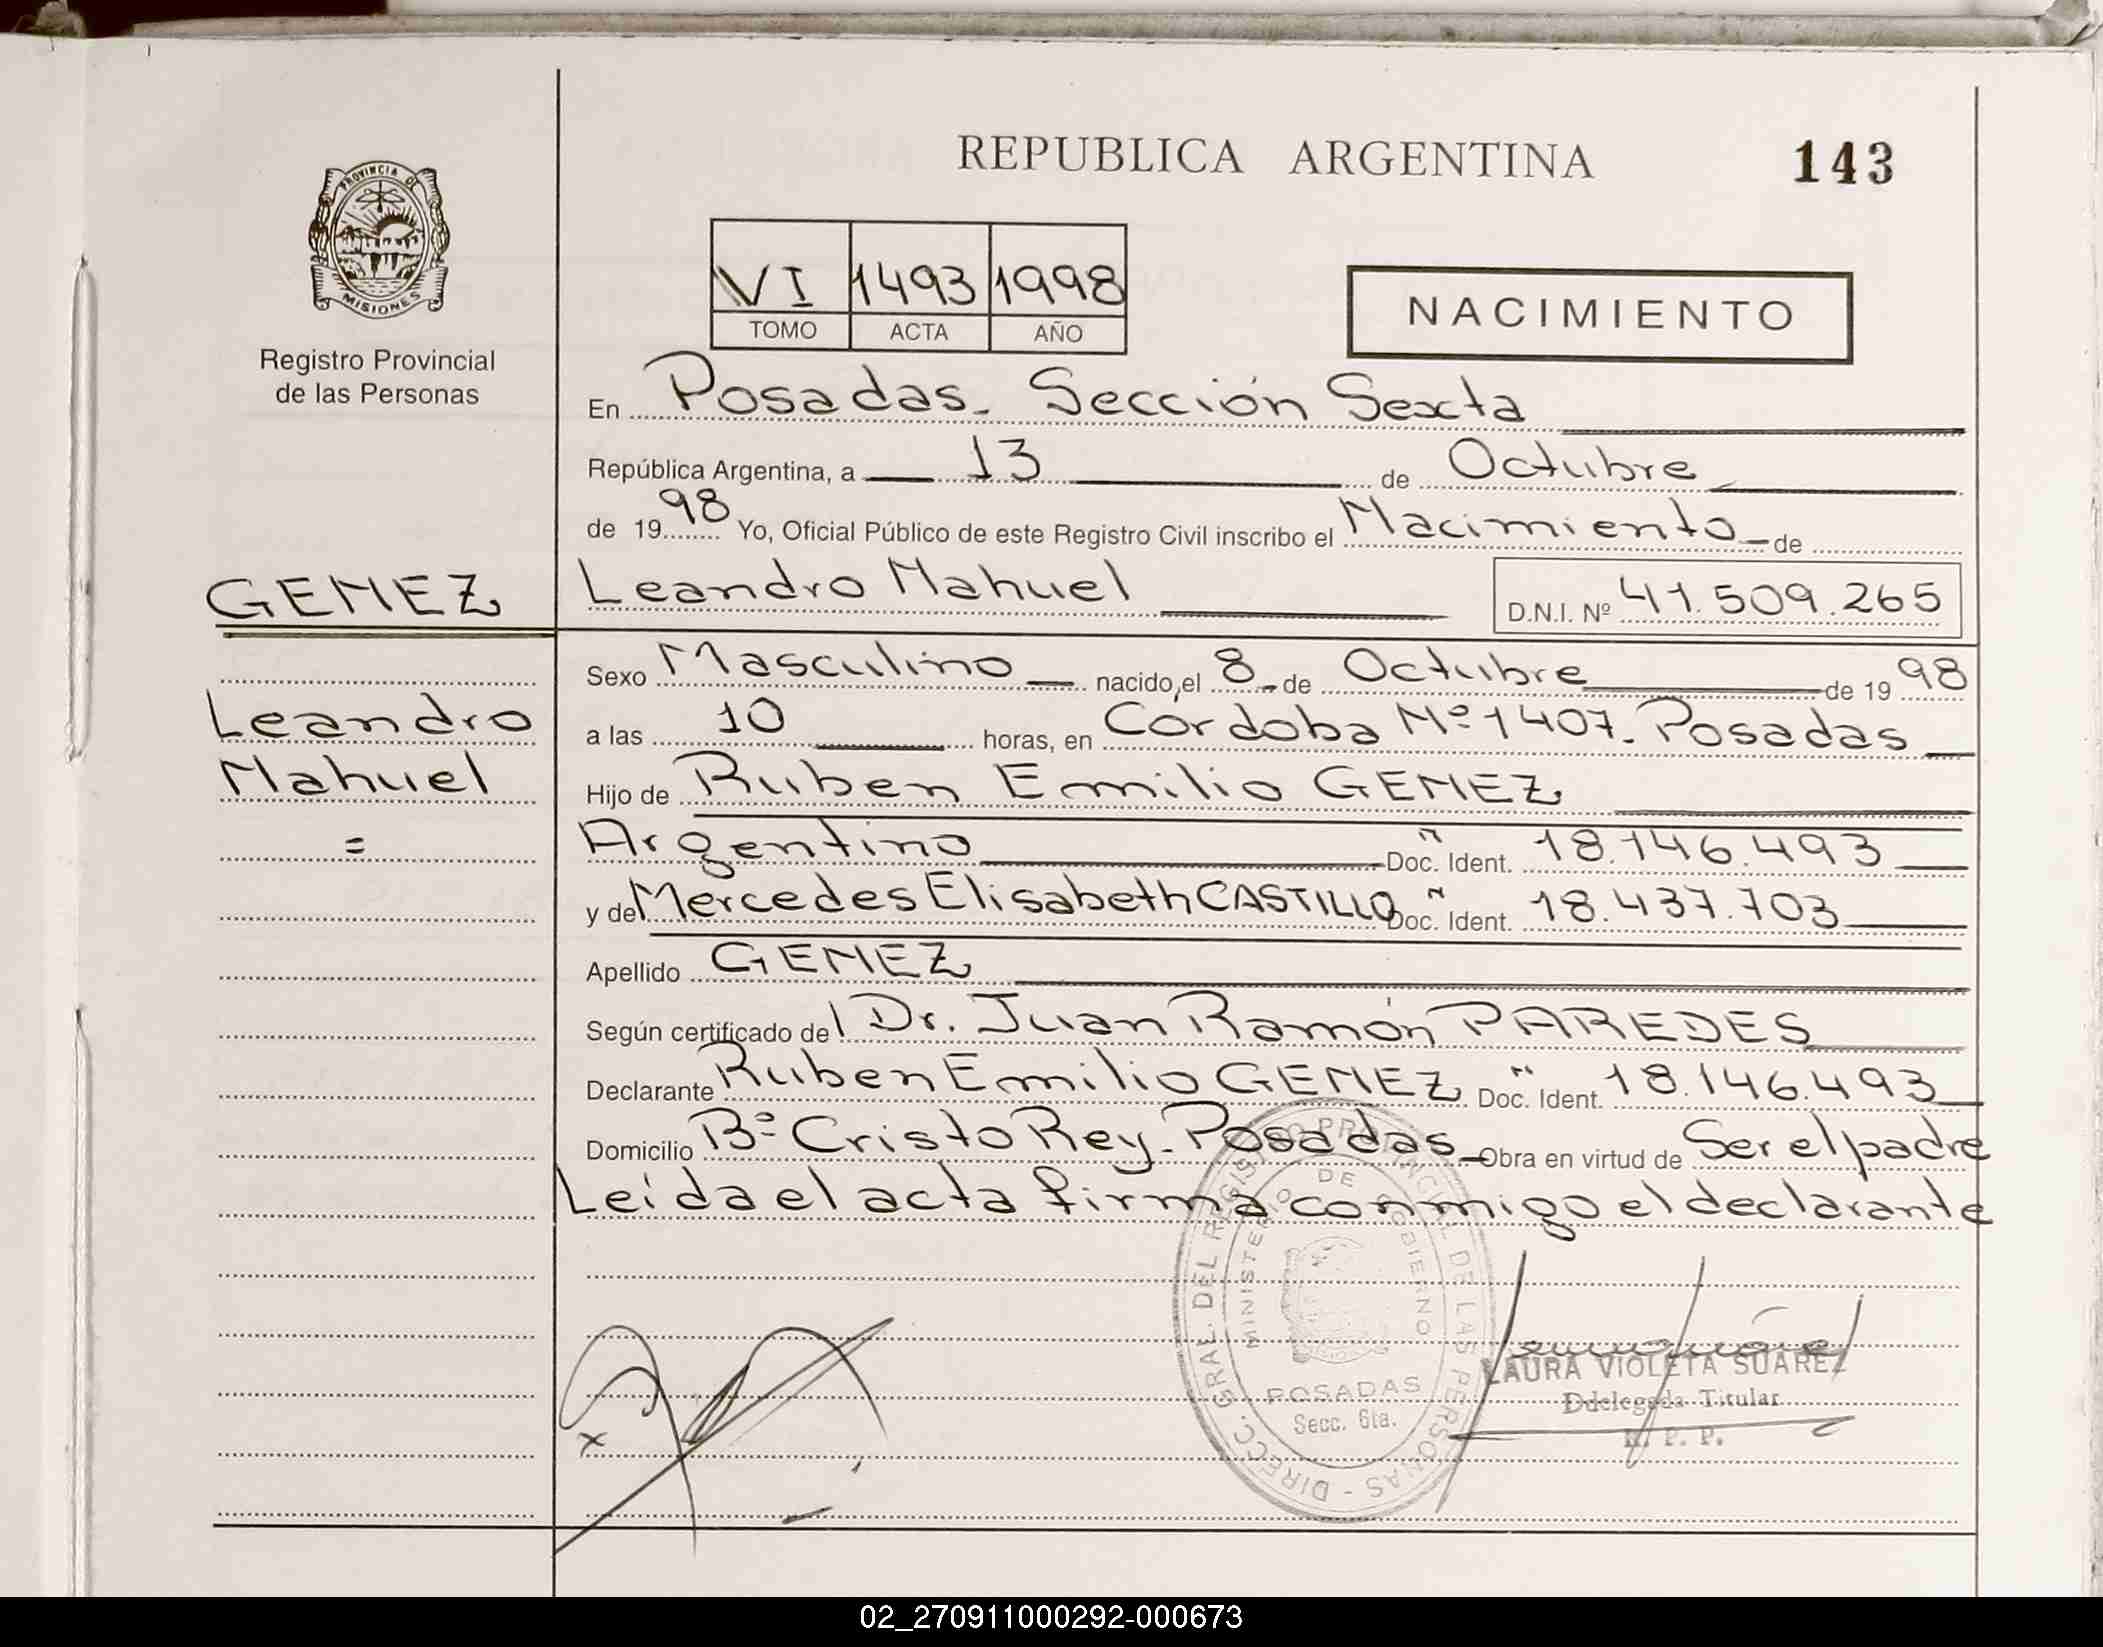 REPUBLICA ARGENTINA
143
PROVINCIA DE
MISIONES
Registro Provincial
de las Personas
VI 1493 1998
TOMO ACTA AÑO
NACIMIENTO
En Posadas. Sección Sexta
República Argentina, a 13 de Octubre
de 1998 Yo, Oficial Público de este Registro Civil inscribo el Nacimiento de
GENEZ
Leandro Nahuel
D.N.I. Nº 41.509.265
Leandro
Nahuel
=
Sexo Masculino nacido, el 8 de Octubre de 1998
a las 10 horas, en Córdoba Nº 1407. Posadas
Hijo de Ruben Emilio GENEZ
Argentino Doc. Ident. 18.146.493
y de Mercedes Elisabeth CASTILLO Doc. Ident. 18.437.703
Apellido GENEZ
Según certificado del Dr. Juan Ramón PAREDES
Declarante Ruben Emilio GENEZ Doc. Ident. 18.146.493
Domicilio Bº Cristo Rey. Posadas Obra en virtud de Ser el padre
Leída el acta firma conmigo el declarante
DIRECC. GRAL. DEL REGISTRO PROVINCIAL DE LAS PERSONAS -
MINISTERIO DE GOBIERNO
POSADAS
Secc. 6ta.
LAURA VIOLETA SUAREZ
Ddelegada Titular
R. P. P.
02_270911000292-000673